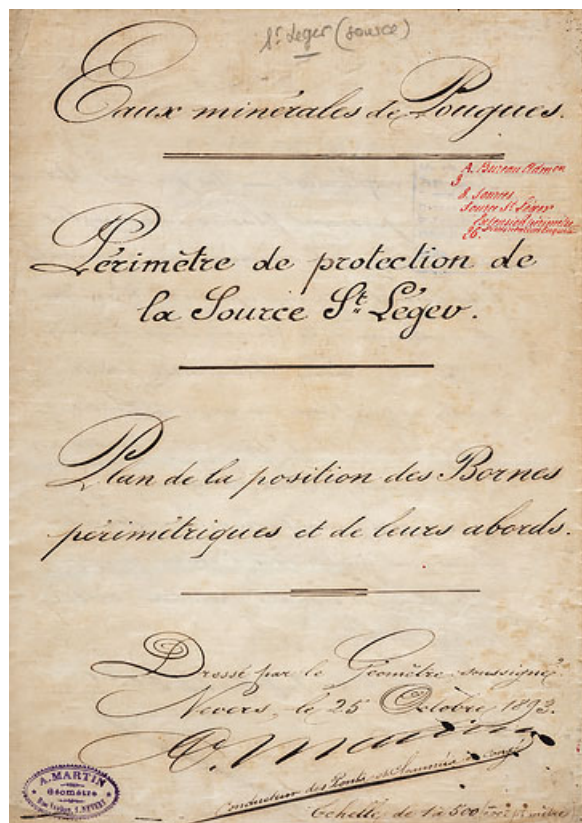 St Leger (source)
Eaux minérales de Pougues.
A. Bureau Admon
3
8. Sources
Source St Léger
Extension périmètre
26.
Périmètre de protection de
la Source St Léger.
Plan de la position des Bornes
périmétriques et de leurs abords.
Dressé par le Géomètre soussigné.
Nevers, le 25 Octobre 1893.
A. Martin
Conducteur des Ponts et Chaussées en congé
A. MARTIN
Géomètre
NEVERS
Echelle de 1 à 500